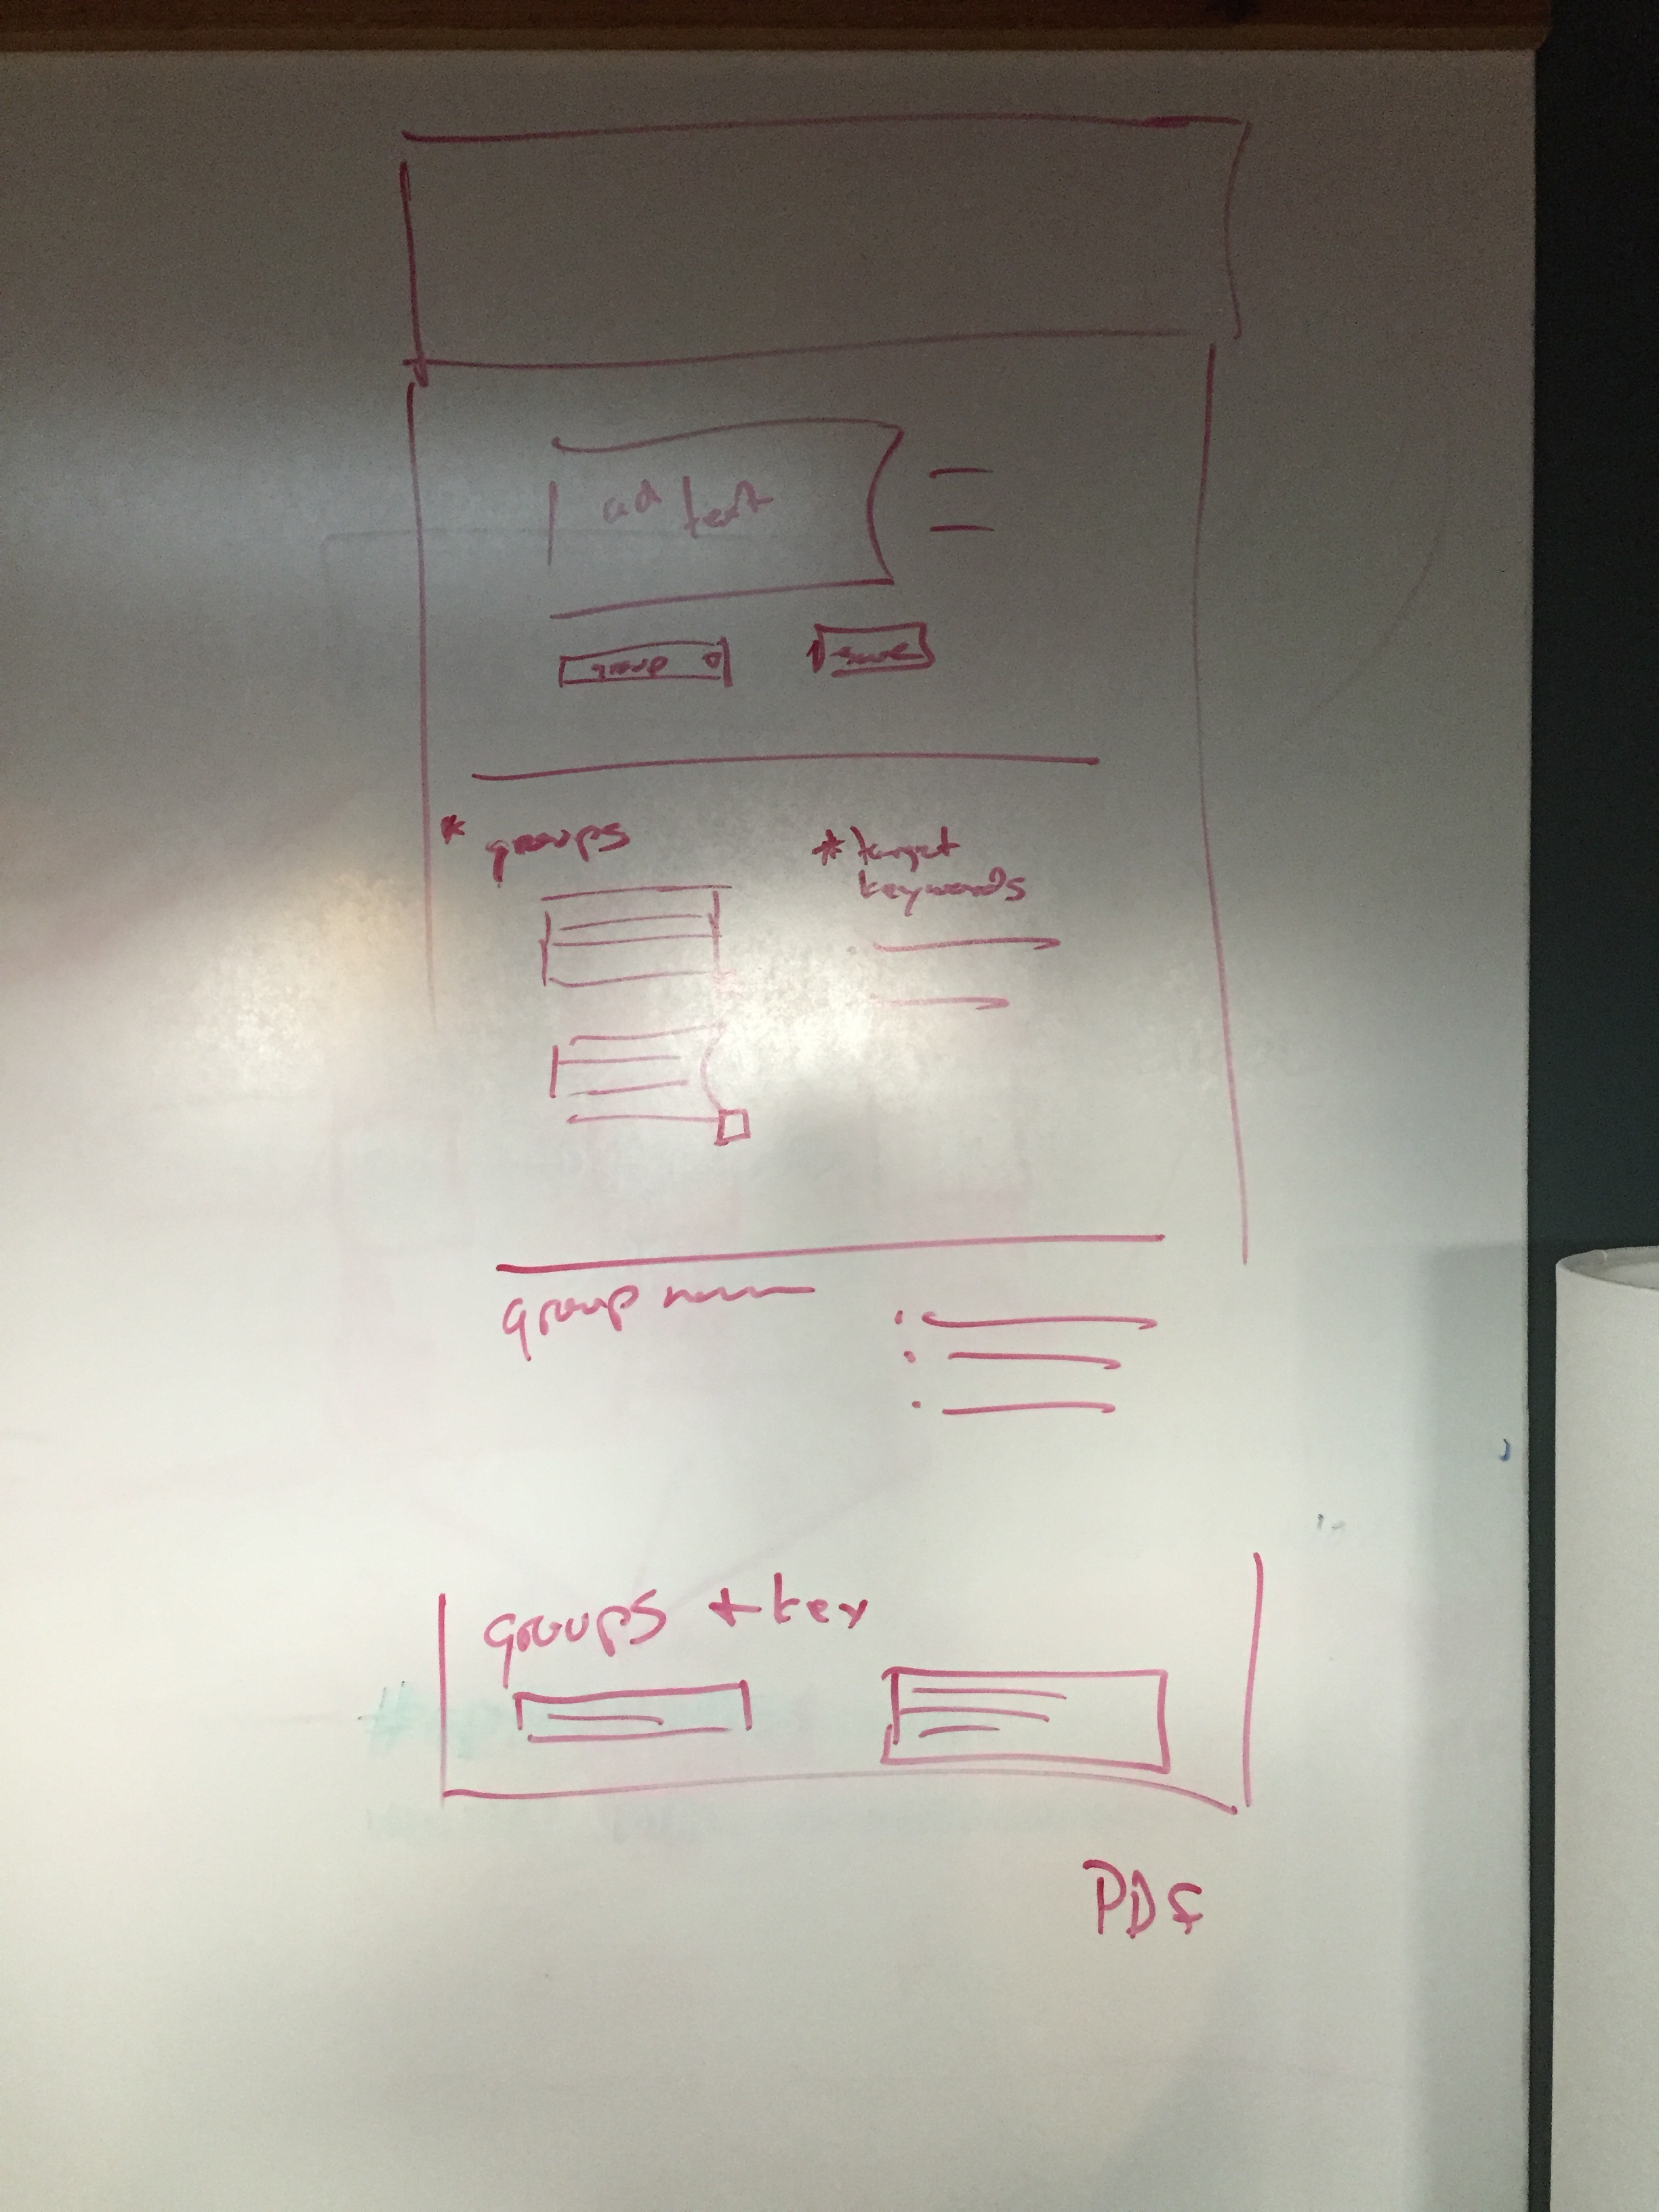 ad text
group
save
* groups
* target
keywords
group
groups + key
PDF